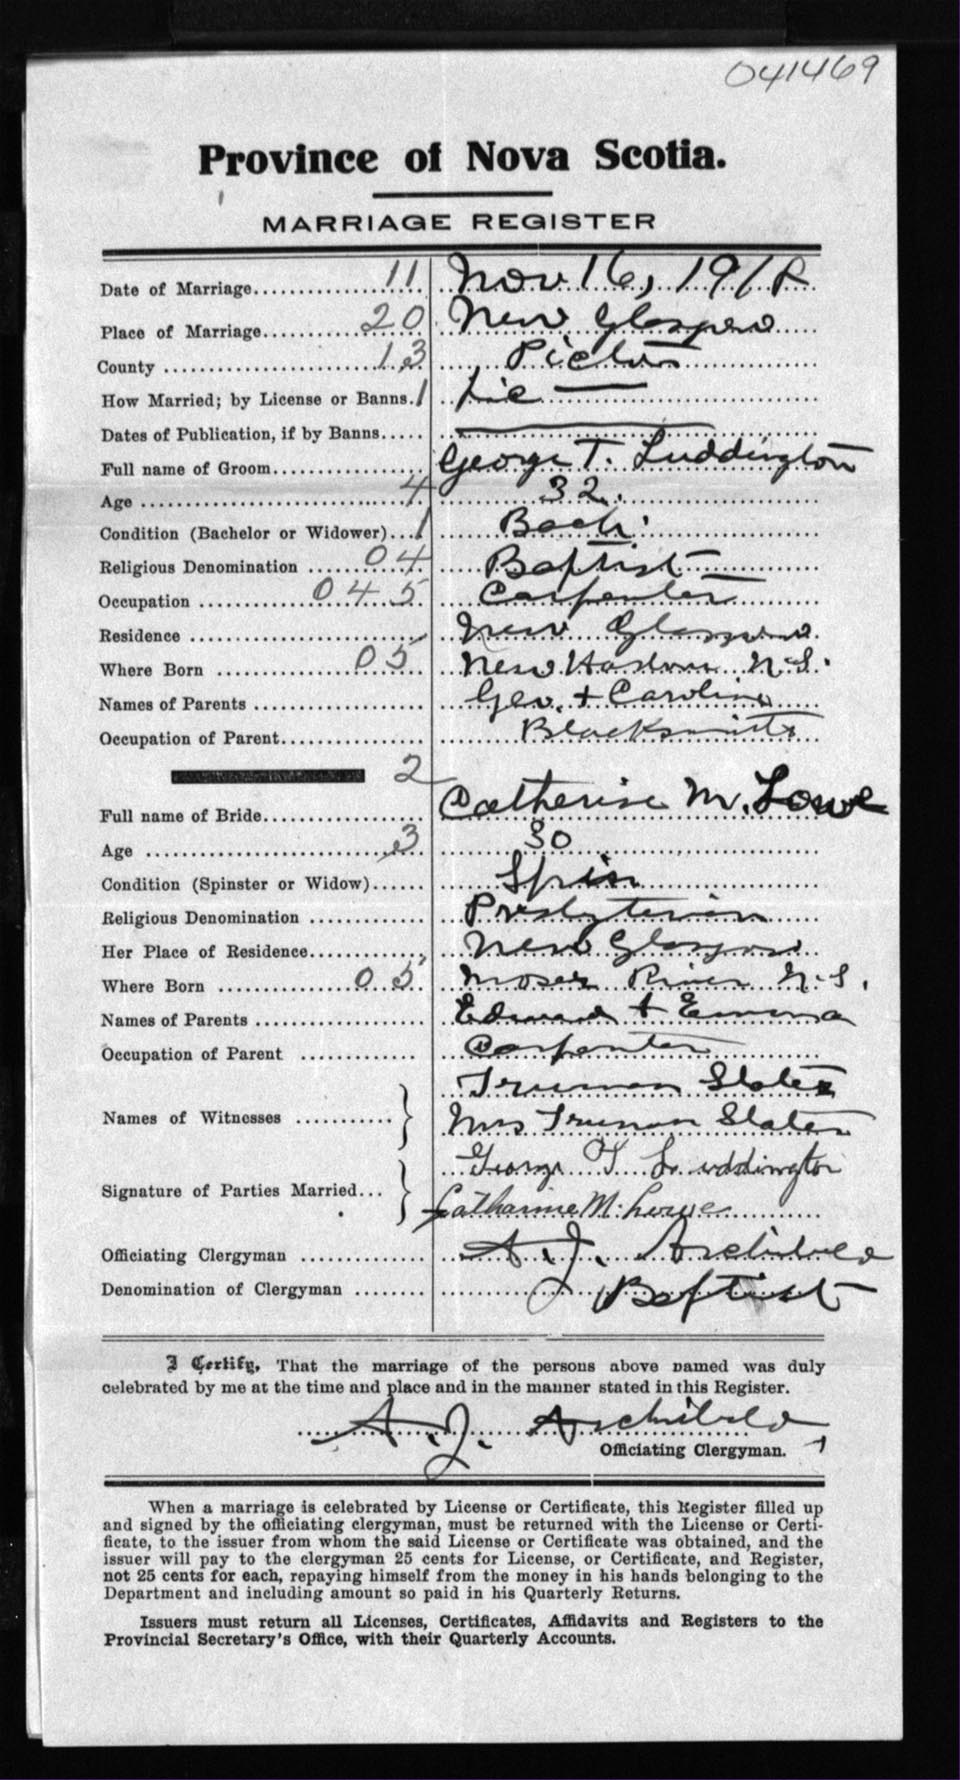 041469
Province of Nova Scotia.
MARRIAGE REGISTER
Date of Marriage 11 Nov 16, 191
Place of Marriage 20 New Glasgow
County 13 Pictou
How Married; by License or Banns. 1 Lic
Dates of Publication, if by Banns
Full name of Groom George T. Luddington
Age 4 32.
Condition (Bachelor or Widower) 1 Bach.
Religious Denomination 04 Baptist
Occupation 045 Carpenter
Residence New Glasgow
Where Born 05 New N.S.
Names of Parents Geo. + Caroline
Occupation of Parent Blacksmith
2
Full name of Bride Catherine M. Lowe
Age 3 30
Condition (Spinster or Widow) Spin
Religious Denomination Presbyterian
Her Place of Residence New Glasgow
Where Born 05 Moser River N.S.
Names of Parents Edward + Emma
Occupation of Parent Carpenter
Truman Slater
Names of Witnesses Mrs Truman Slater
George T Luddington
Signature of Parties Married Catharine M. Lowe
Officiating Clergyman A. J. Archibald
Denomination of Clergyman Baptist
I Certify, That the marriage of the persons above named was duly
celebrated by me at the time and place and in the manner stated in this Register.
A. J. Archibald
Officiating Clergyman.
When a marriage is celebrated by License or Certificate, this Register filled up
and signed by the officiating clergyman, must be returned with the License or Certi-
ficate, to the issuer from whom the said License or Certificate was obtained, and the
issuer will pay to the clergyman 25 cents for License, or Certificate, and Register,
not 25 cents for each, repaying himself from the money in his hands belonging to the
Department and including amount so paid in his Quarterly Returns.
Issuers must return all Licenses, Certificates, Affidavits and Registers to the
Provincial Secretary's Office, with their Quarterly Accounts.